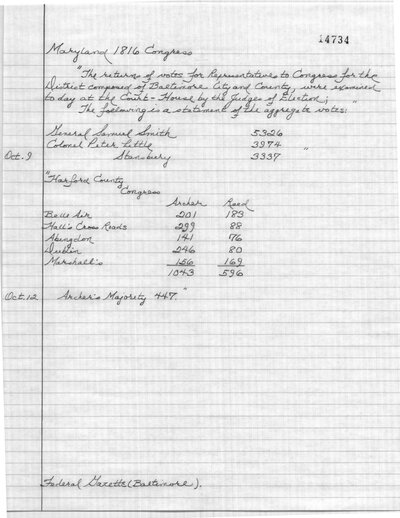 14734
Maryland 1816 Congress
"The returns of votes for Representatives to Congress for the
District composed of Baltimore City and County, were examined
to day at the Court-House by the Judges of Election;
The following is a statement of the aggregate votes:"
General Samuel Smith 5326
Colonel Peter Little 3974 "
Oct. 9 Stansbury 3337
"Harford County
Congress
Archer Reed
Belle Air 201 183
Hall's Cross Roads 299 88
Abingdon 141 76
Dublin 246 80
Marshall's 156 169
1043 596
Oct. 12 Archer's Majority 447."
Federal Gazette (Baltimore).